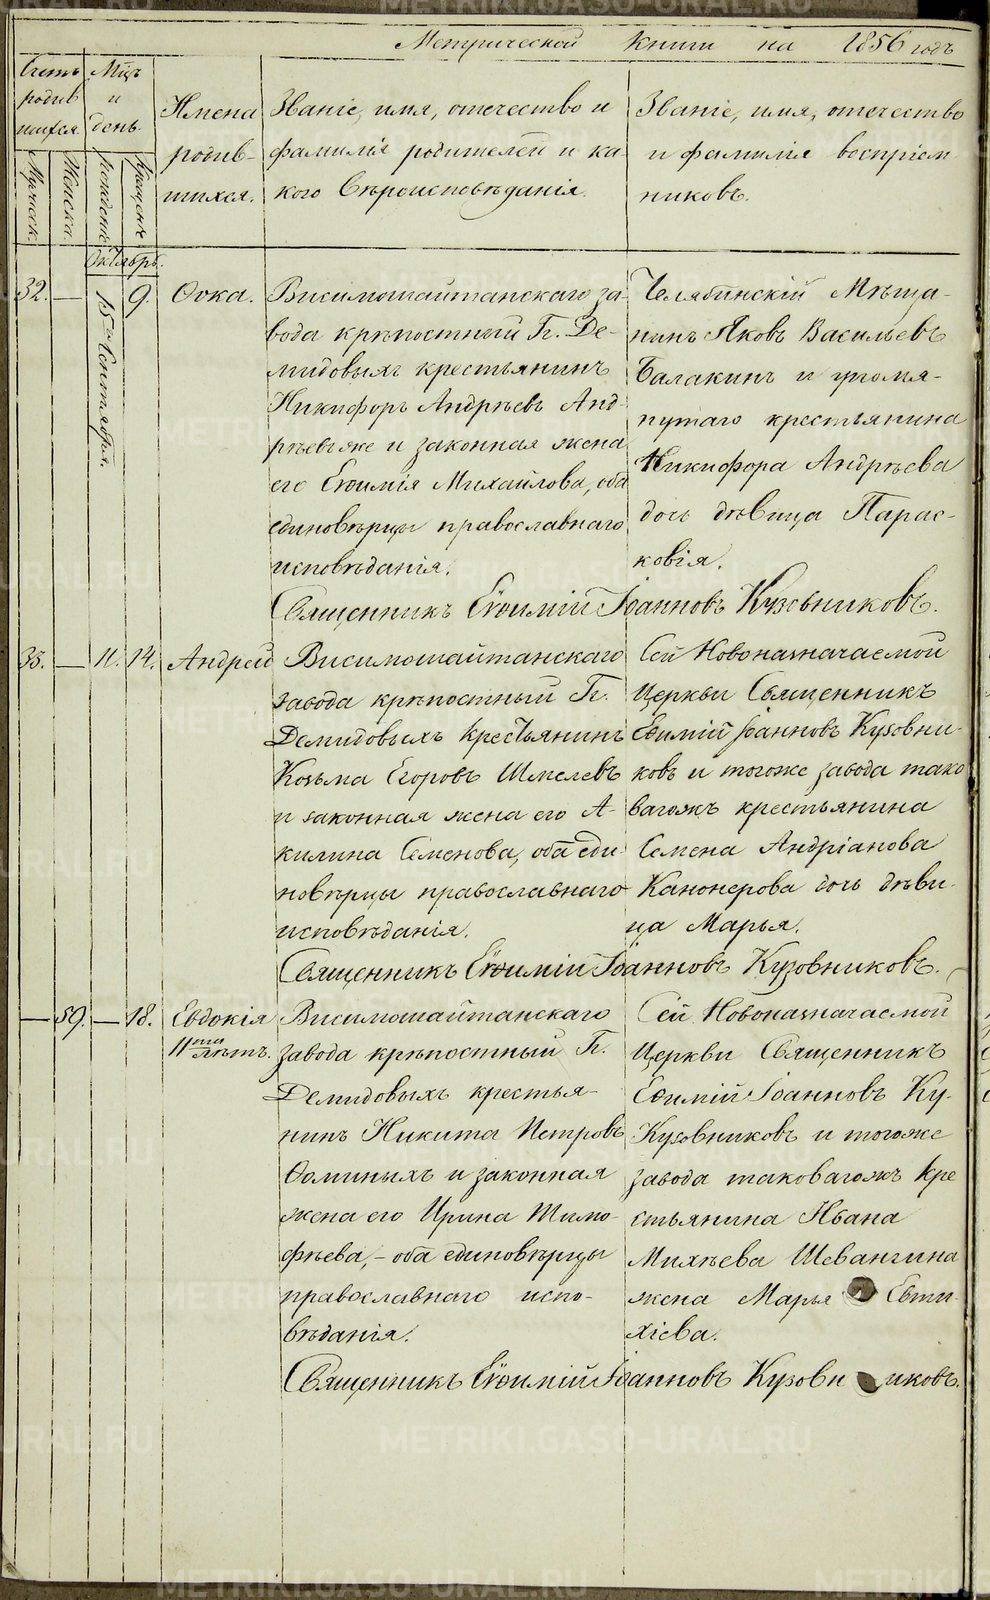 Метрической книги на 1856 годъ
Счетъ родив шихся.
Мѣц. и день.
Имена родив- шихся.
Званіе, имя, отечество и
фамилія родителей и ка-
кого вѣроисповѣданія.
Званіе, имя, отечество
и фамилія воспріем-
никовъ.
Мужеск.
Женска.
рожден.
крещен.
Октябрь.
32. — 15го Сентября. 9. Ѳока.
Висимошайтанскаго за-
вода крѣпостный Гг. Де-
мидовыхъ крестьянинъ
Никифоръ Андрѣевъ Анд-
рѣевъ же и законная жена
его Евѳимія Михайлова, оба
единовѣрцы православнаго
исповѣданія.
Челябинскій Мѣща-
нинъ Яковъ Васильевъ
Балакинъ и упомя-
нутаго крестьянина
Никифора Андрѣева
дочь дѣвица Парас-
ковія.
Священникъ Евѳимій Іоанновъ Кузовниковъ.
33. — 11. 14. Андрей
Висимошайтанскаго
завода крѣпостный Гг.
Демидовыхъ крестьянинъ
Козьма Егоровъ Шмелевъ
и законная жена его А-
килина Семенова, оба еди-
новѣрцы православнаго
исповѣданія.
Сей Новоназначаемой
Церкви Священникъ
Евѳимій Іоанновъ Кузовни-
ковъ и тогоже завода тако
вагожъ крестьянина
Семена Андріанова
Канонерова дочь дѣви-
ца Марья.
Священникъ Евѳимій Іоанновъ Кузовниковъ.
— 59. — 18. Евдокія
11ти лѣтъ.
Висимошайтанскаго
завода крѣпостный Гг.
Демидовыхъ крестья-
нинъ Никита Петровъ
Ѳоминыхъ и законная
жена его Ирина Тимо-
фѣева, – оба единовѣрцы
православнаго испо-
вѣданія.
Сей Новоназначаемой
Церкви Священникъ
Евѳимій Іоанновъ Ку-
Кузовниковъ и тогоже
завода таковагожъ кре
стьянина Ивана
Михѣева Шевангина
жена Марья Евти-
хіева.
Священникъ Евѳимій Іоанновъ Кузовниковъ.
METRIKI.GASO-URAL.RU